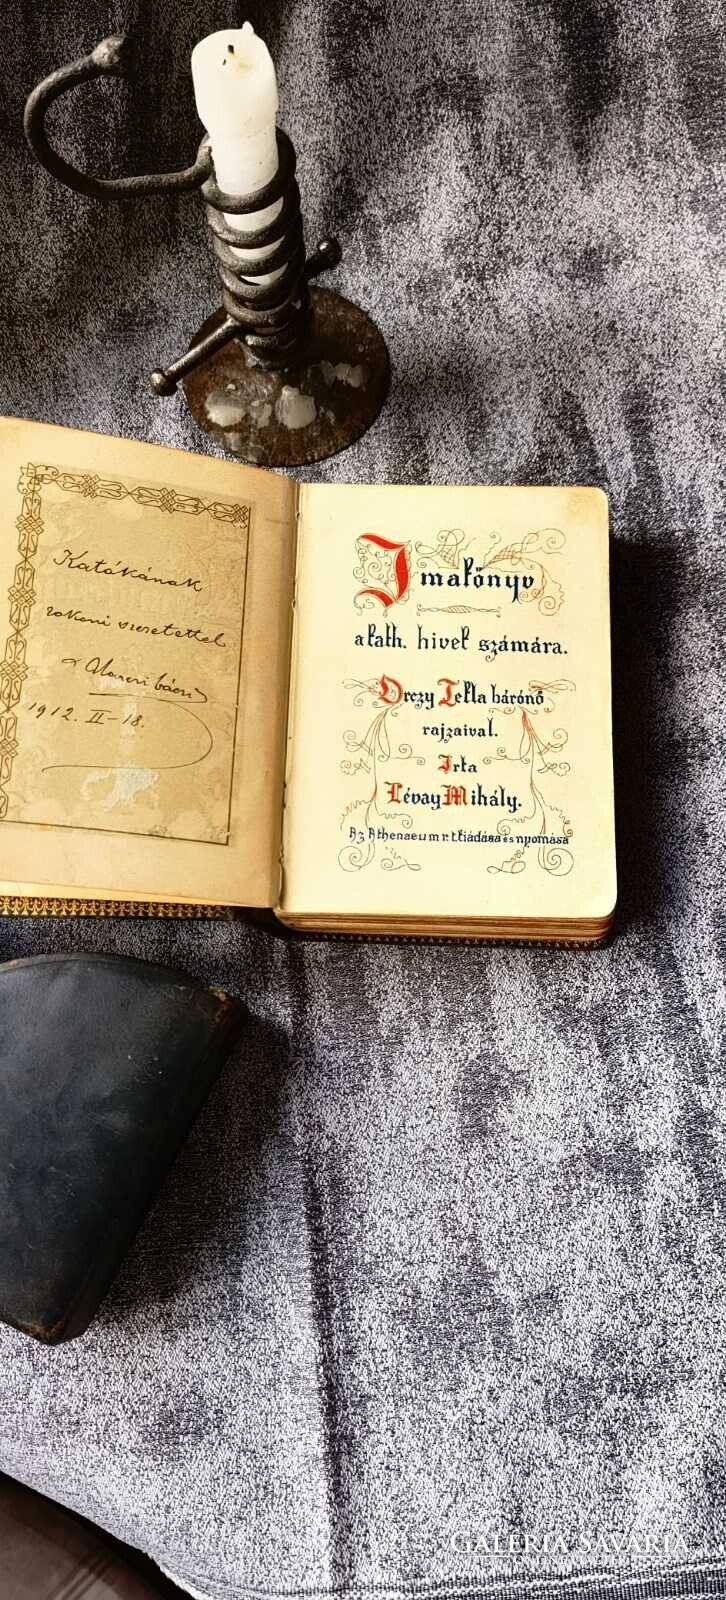 Katókának
rokoni szeretettel
bácsi
1912. II-18.
Imakönyv
a kath. hivek számára.
Orczy Tekla bárónő
rajzaival.
Irta
Lévay Mihály.
Az Athenaeum r.t. kiadása és nyomása
GALERIA SAVARIA